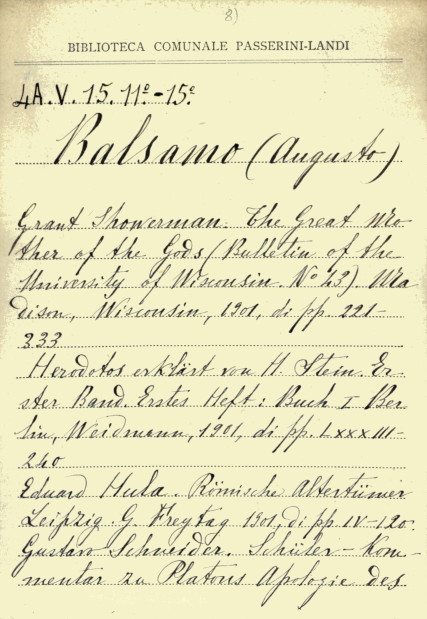 8)
BIBLIOTECA COMUNALE PASSERINI-LANDI
4A.V. 15. 11º-15º
Balsamo (Augusto)
Grant Showerman. The Great Mo-
ther of the Gods (Bulletin of the
University of Wisconsin Nº 43). Ma
dison, Wisconsin, 1901, di pp. 221-
333
Herodotos erklärt von H. Stein. Er-
ster Band. Erstes Heft: Buch I Ber
lin, Weidmann, 1901, di pp. LXXXIII-
240
Eduard Hula. Römische Altertümer
Leipzig G. Freytag 1901, di pp. IV-120.
Gustav Schneider. Schüler-Kom-
mentar zu Platons Apologie des